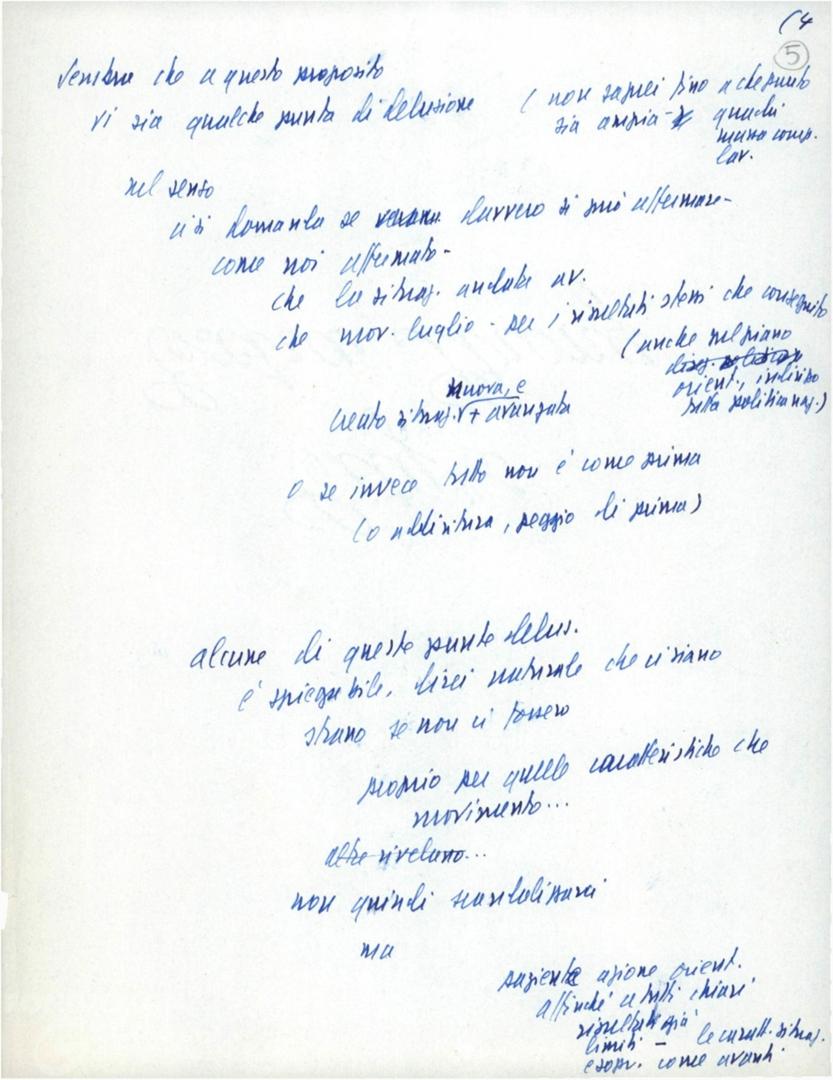 (4
5
Sembra che a questo proposito
vi sia qualche punta di delusione
( non saprei fino a che punto
sia ampia - quadri
massa comp.
lav.
nel senso
ci si domanda se davvero si può affermare -
come noi affermato -
che la situaz. andata av.
che mov. luglio - per i risultati stessi che conseguito
( anche nel piano
orient., indirizzo
della politica naz.)
nuova, e
creato situaz. + avanzata
o se invece tutto non è come prima
(o addirittura, peggio di prima)
alcune di queste punte delus.
è spiegabile, direi naturale che ci siano
strano se non ci fossero
proprio per quelle caratteristiche che
movimento...
altre rivelano...
non quindi scandalizzarci
ma
paziente azione orient.
affinché a tutti chiari
risultati già
limiti - le caratt. situaz.
e sopr. come avanti